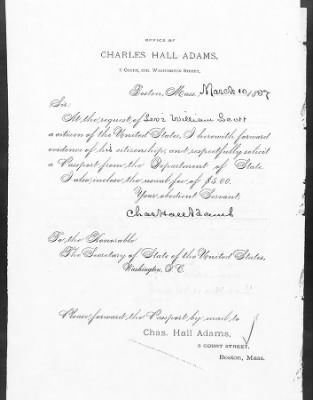 OFFICE OF
CHARLES HALL ADAMS,
5 COURT, COR. WASHINGTON STREET,
Boston, Mass. March 10, 1887
Sir:
At the request of Levi William Scott
a citizen of the United States, I herewith forward
evidence of his citizenship, and respectfully solicit
a Passport from the Department of State.
I also inclose the usual fee of $5.00.
Your obedient Servant,
Chas Hall Adams
To, the Honorable
The Secretary of State of the United States,
Washington, D.C.
Please forward, the Passport, by mail to
Chas. Hall Adams,
5 COURT STREET,
Boston, Mass.